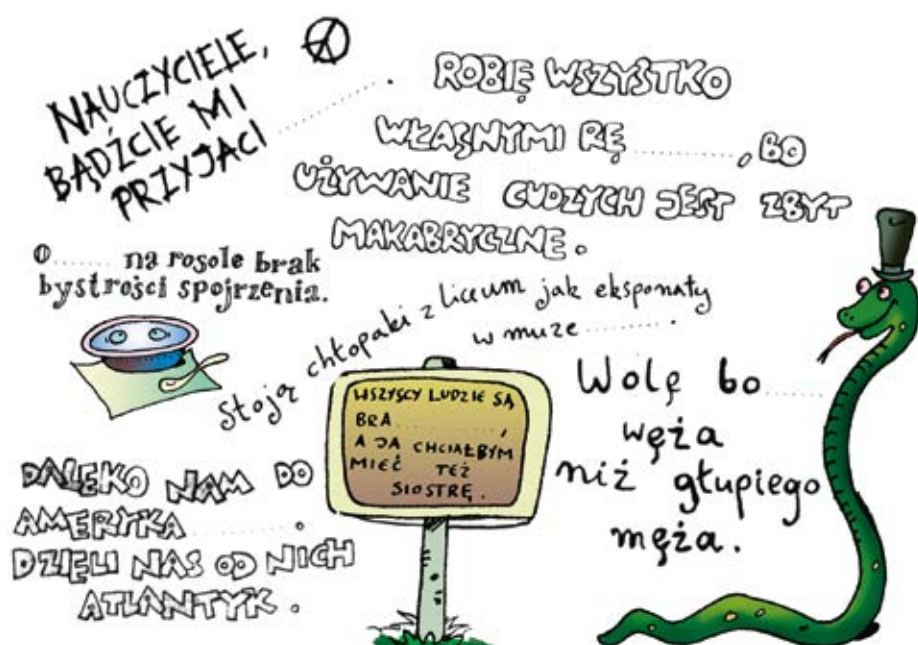 NAUCZYCIELE,
BĄDŹCIE MI
PRZYJACI..........
ROBIĘ WSZYSTKO
WŁASNYMI RĘ.........., BO
UŻYWANIE CUDZYCH JEST ZBYT
MAKABRYCZNE.
O....... na rosole brak
bystrości spojrzenia.
Stoją chłopaki z liceum jak eksponaty
w muze..........
WSZYSCY LUDZIE SĄ
BRA..............,
A JA CHCIAŁBYM
MIEĆ TEŻ
SIOSTRĘ.
Wolę bo......
węża
niż głupiego
męża.
DALEKO NAM DO
AMERYKA..........
DZIELI NAS OD NICH
ATLANTYK.